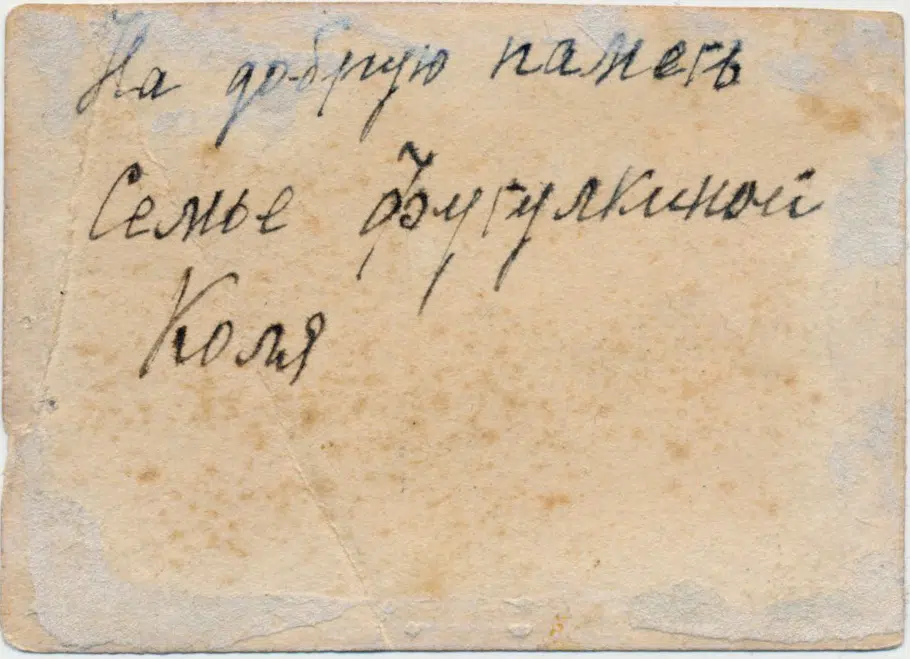 На добрую паметь
Семье Фугулкиной
Коля